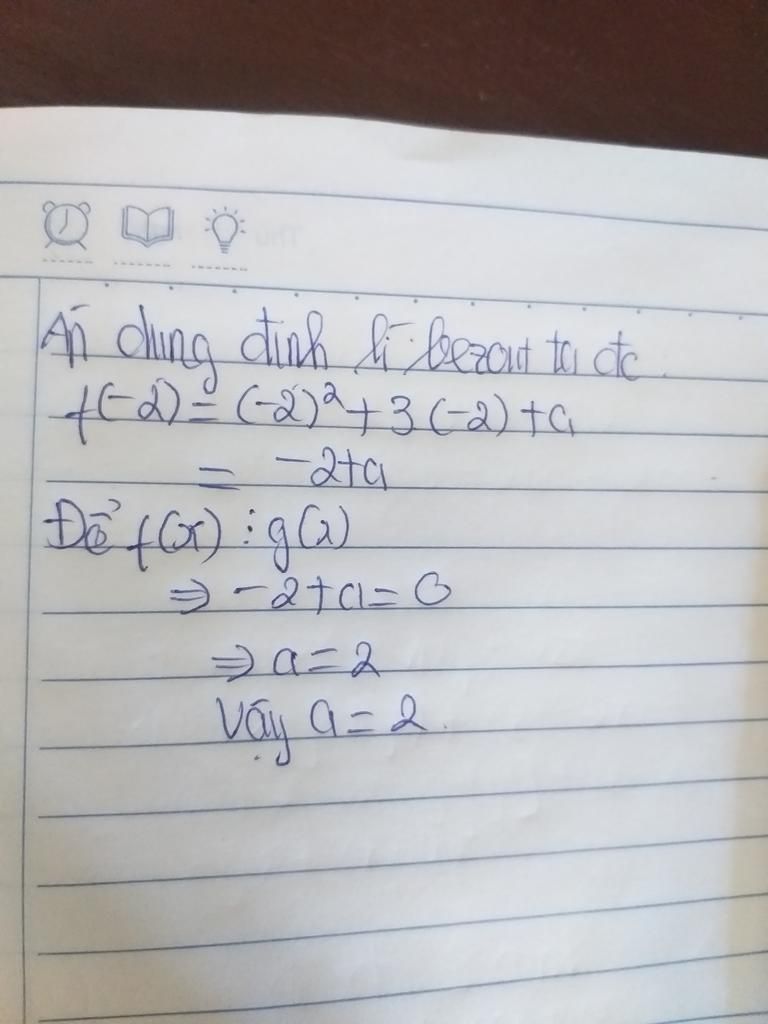 Áp dụng định lí bezout ta đc
f(-2) = (-2)² + 3(-2) + a
= -2+a
Để f(x) ⋮ g(x)
⇒ -2+a = 0
⇒ a = 2
Vậy a = 2.